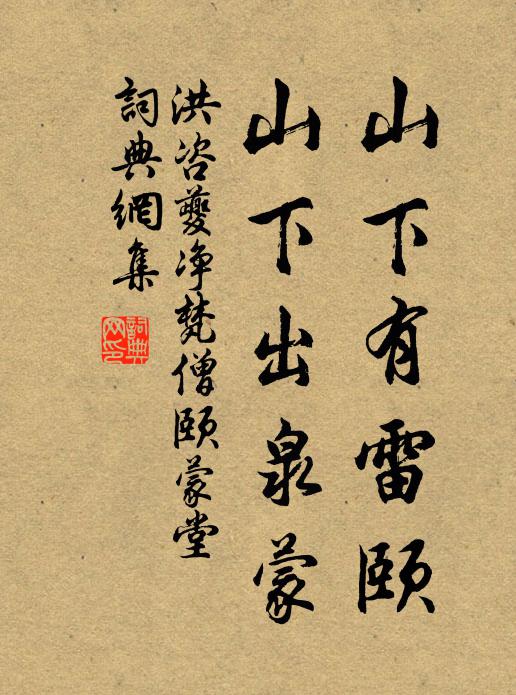 山下有雷頤
山下出泉蒙
洪咨夔净梵僧頤蒙堂
詞典網集
詞典網印